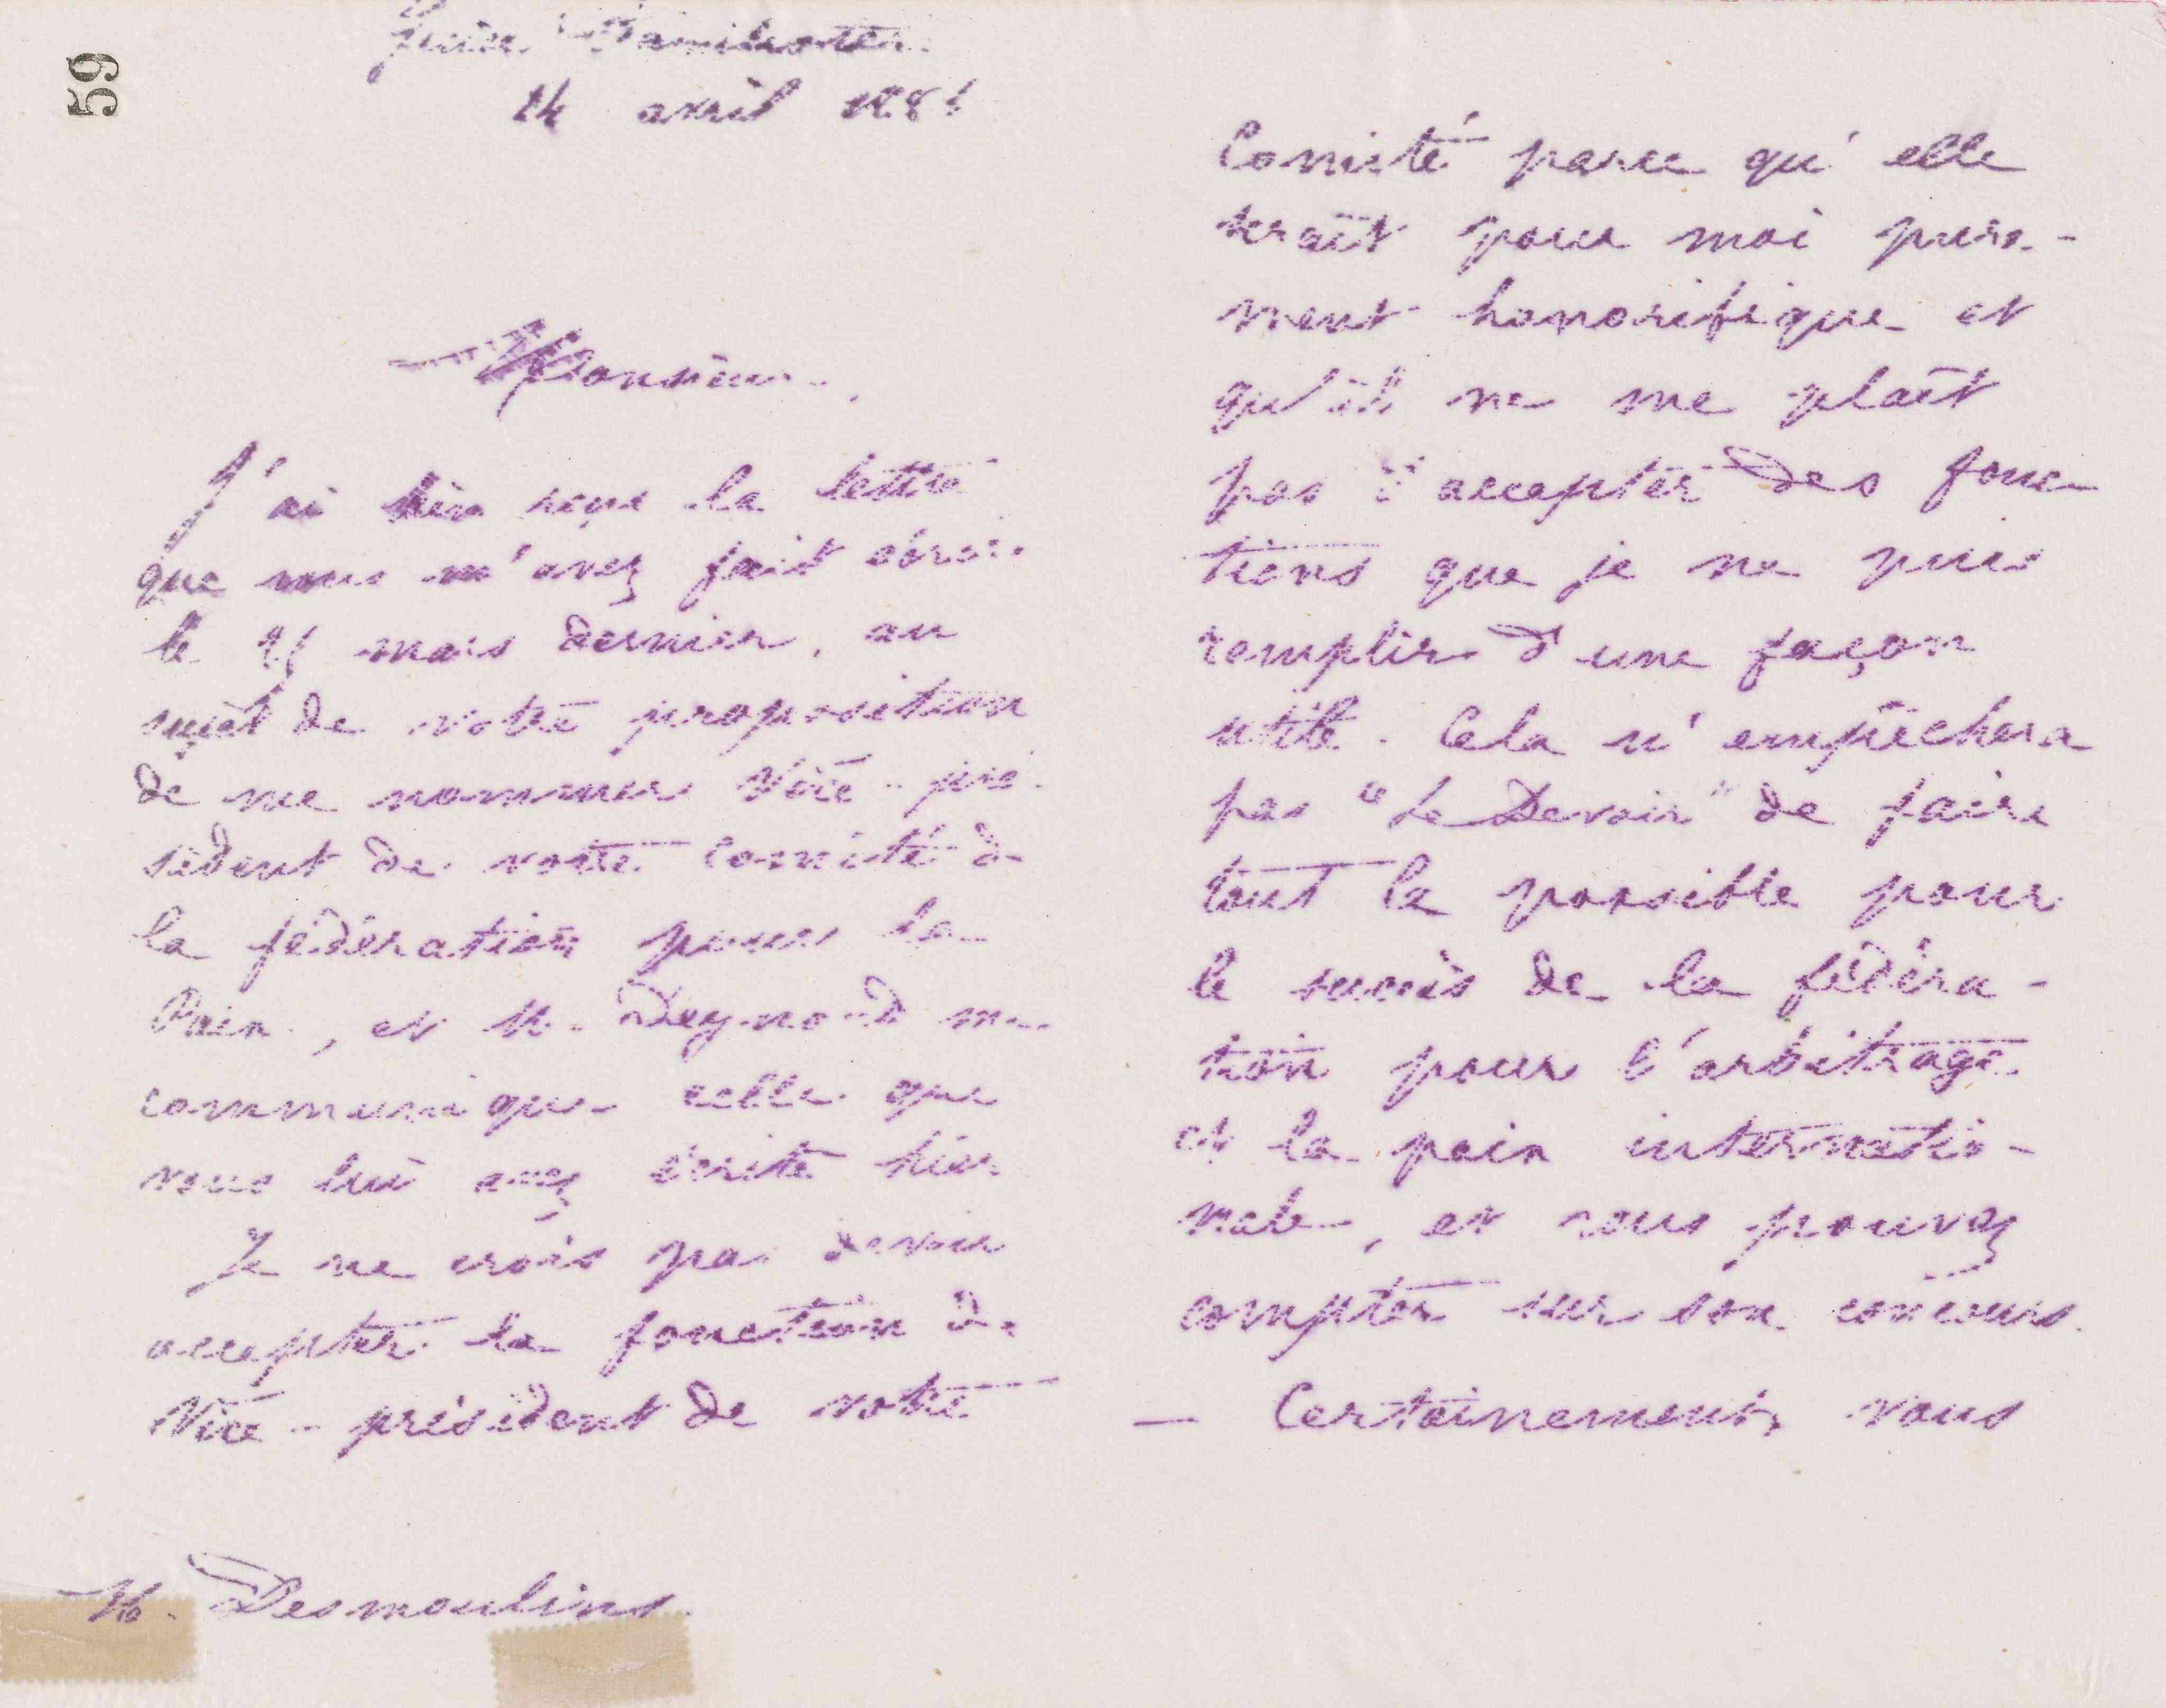 59
Guise Familistère
14 avril 188
Monsieur,
J'ai bien reçu la lettre
que vous m'avez fait
le mars dernier, au
sujet de votre proposition
de me nommer Vice-pré-
sident de votre Comité de
la fédération pour la
Paix, et M. Deynaud me
communique celle que
vous lui avez écrite hier
Je ne crois pas devoir
accepter la fonction de
Vice-président de votre
M. Desmoulins
Comité parce qu'elle
serait pour moi pure-
ment honorifique et
qu'il ne me plaît
pas d'accepter des fonc
tions que je ne puis
remplir d'une façon
utile. Cela n'empêchera
pas "Le Devoir" de faire
tout le possible pour
le succès de la fédéra-
tion pour l'arbitrage
et la paix internatio-
nale, et vous pouvez
compter sur son concours.
— Certainement, vous